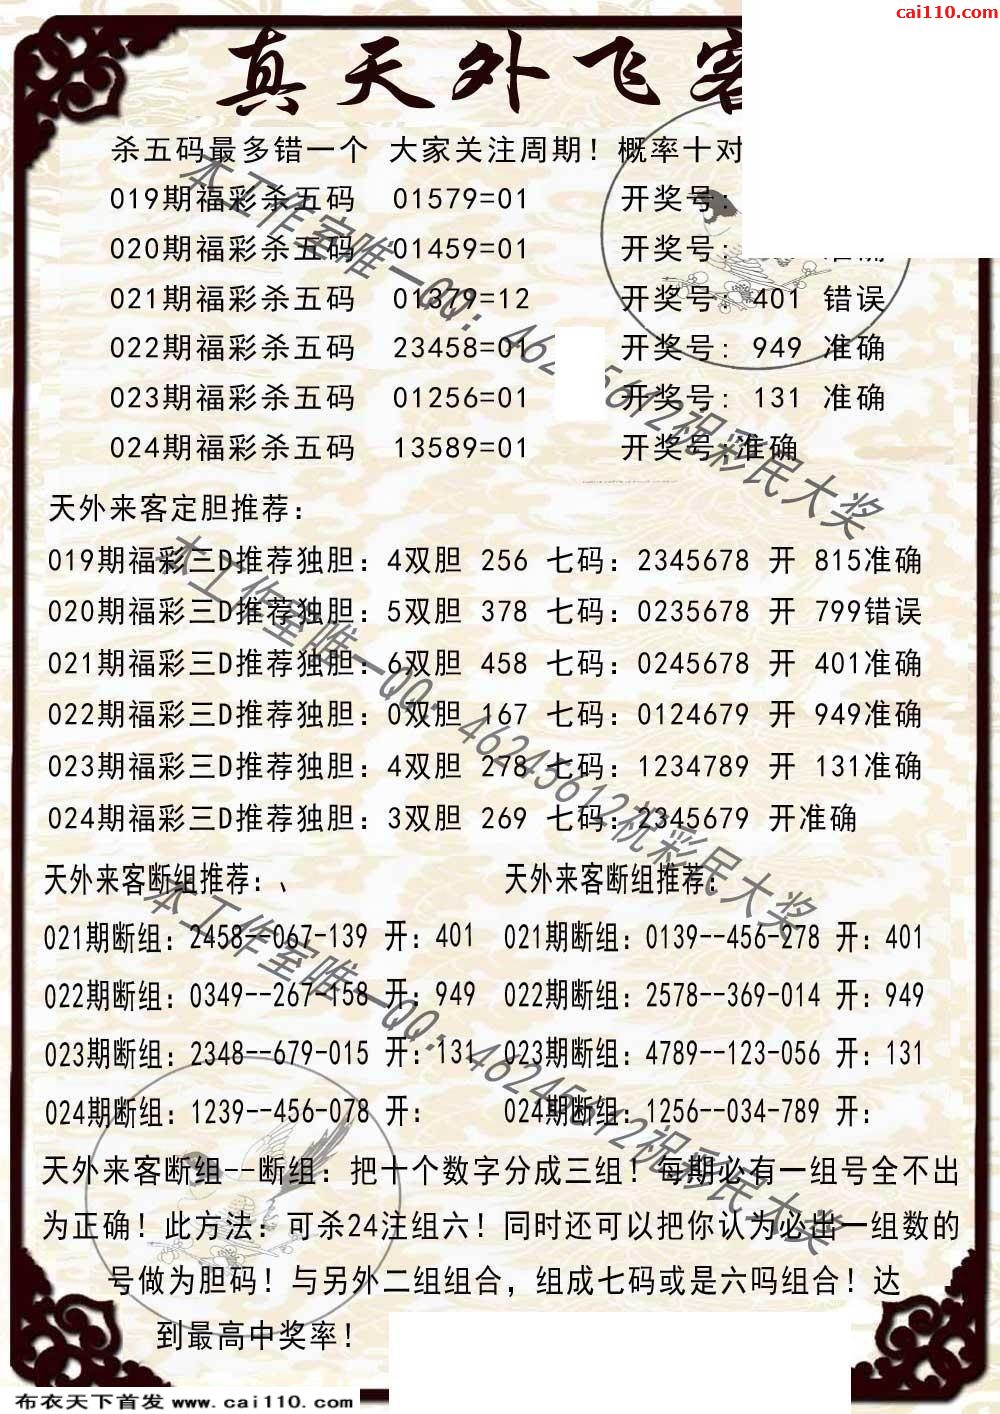 cai110.com
真天外飞客
杀五码最多错一个 大家关注周期！概率十对
019期福彩杀五码 01579=01 开奖号:
020期福彩杀五码 01459=01 开奖号: 准确
021期福彩杀五码 01379=12 开奖号: 401 错误
022期福彩杀五码 23458=01 开奖号: 949 准确
023期福彩杀五码 01256=01 开奖号: 131 准确
024期福彩杀五码 13589=01 开奖号:准确
天外来客定胆推荐:
019期福彩三D推荐独胆: 4双胆 256 七码: 2345678 开 815准确
020期福彩三D推荐独胆: 5双胆 378 七码: 0235678 开 799错误
021期福彩三D推荐独胆: 6双胆 458 七码: 0245678 开 401准确
022期福彩三D推荐独胆: 0双胆 167 七码: 0124679 开 949准确
023期福彩三D推荐独胆: 4双胆 278 七码: 1234789 开 131准确
024期福彩三D推荐独胆: 3双胆 269 七码: 2345679 开准确
天外来客断组推荐:、 天外来客断组推荐:
021期断组: 2458--067-139 开: 401 021期断组: 0139--456-278 开: 401
022期断组: 0349--267-158 开: 949 022期断组: 2578--369-014 开: 949
023期断组: 2348--679-015 开: 131 023期断组: 4789--123-056 开: 131
024期断组: 1239--456-078 开: 024期断组: 1256--034-789 开:
天外来客断组--断组: 把十个数字分成三组！每期必有一组号全不出
为正确！此方法: 可杀24注组六！同时还可以把你认为必出一组数的
号做为胆码！与另外二组组合，组成七码或是六吗组合！达
到最高中奖率！
本工作室唯一QQ: 46245612祝彩民大奖
本工作室唯一QQ: 46245612祝彩民大奖
本工作室唯一QQ: 46245612祝彩民大奖
布衣天下首发 www.cai110.com